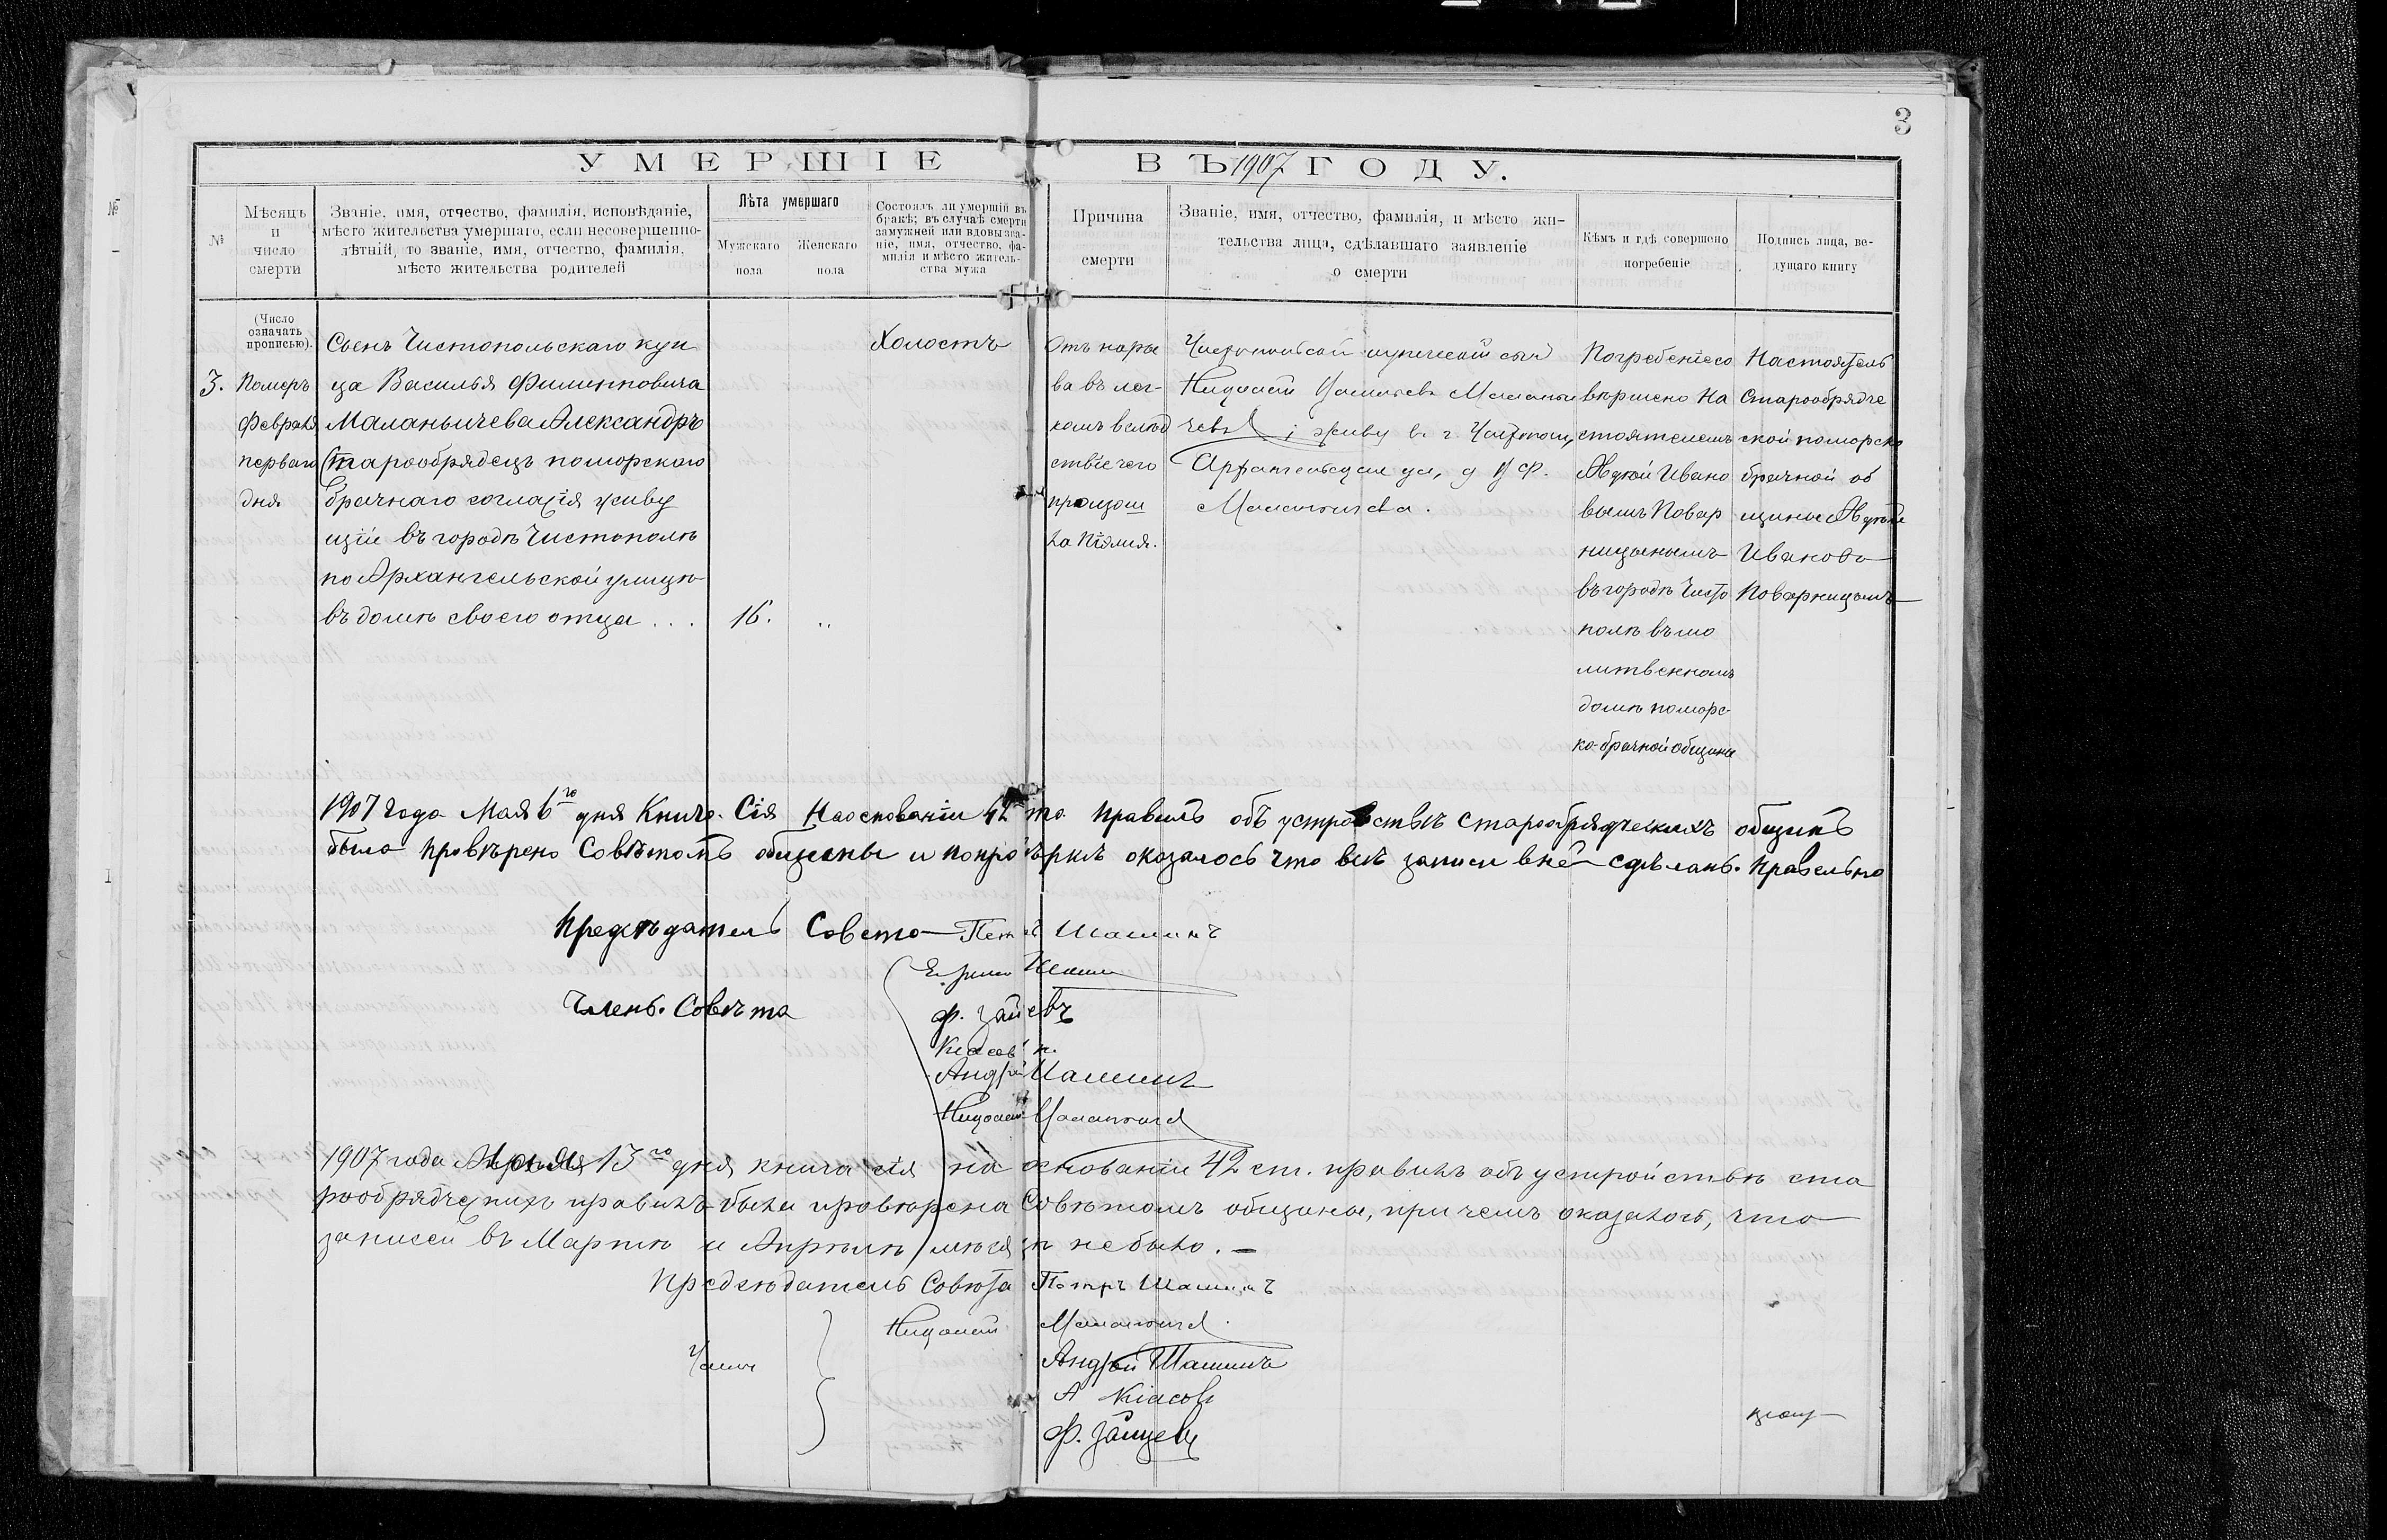 3
УМЕРШІЕ ВЪ 1907 ГОДУ.
№
Мѣсяцъ
и
число
смерти
Званіе, имя, отчество, фамилія, исповѣданіе,
мѣсто жительства умершаго, если несовершенно-
лѣтній, то званіе, имя, отчество, фамилія,
мѣсто жительства родителей
Лѣта умершаго
Мужскаго
пола
Женскаго
пола
Состоялъ ли умершій въ
бракѣ; въ случаѣ смерти
замужней или вдовы зва-
ніе, имя, отчество, фа-
милія и мѣсто житель-
ства мужа
Причина
смерти
Званіе, имя, отчество, фамилія, и мѣсто жи-
тельства лица, сдѣлавшаго заявленіе
о смерти
Кѣмъ и гдѣ совершено
погребеніе
Подпись лица, ве-
дущаго книгу
(Число
означать
прописью).
3.
Померъ
Февраля
перваго
дня
Сынъ Чистопольскаго куп
ца Василья Филипповича
Маланьичева Александръ
Старообрядецъ поморскаго
брачнаго согласія живу
щій въ городѣ Чистополѣ
по Архангельской улицѣ
въ домѣ своего отца . . .
16.
„
Холостъ
Отъ нары
ва въ лег-
комъ вслѣд
ствіе чего
произош
ла піэмія.
Чистопольскій купеческій сынъ
Николай Васильевъ Маланьи
чевъ живу в. г. Чистополѣ
Архангельская ул, д В Ф.
Маланьичева.
Погребеніе со
вершено На
стоятелемъ
Авдѣй Ивано
вымъ Повар
ницынымъ
въ городѣ Чисто
полѣ въ мо
литвенномъ
домѣ поморс-
ко-брачной общины
Настоятель
Старообрядче
ской поморско
брачной об
щины Авдѣй
Ивановъ
Поварницынъ
1907 года Мая 6го дня Книга Сія На основаніи 42 ст. правилъ объ устройствѣ старообрядческихъ общинъ
была провѣрено Совѣтомъ общины и по провѣркѣ оказалось что всѣ записи в ней сдѣланы правельно
Предсѣдатель Совета Петръ Шашинъ
Шашин
Члены Совѣта
Ф. Зайцевъ
Кіасовъ
Андрей Шашинъ
Николай Маланьичев
1907 года Апрѣля 13го дня книга сія на основаніи 42 ст. правилъ объ устройствѣ ста
рообрядческихъ правилъ была провѣрена Совѣтомъ общины, при чемъ оказалось, что
записей въ Мартѣ и Апрѣлѣ мѣсяцѣ не было. –
Предсѣдатель Совѣта Петръ Шашинъ
Николай Маланьичев
Члены
Андрей Шашинъ
А Кіасовъ
Ф. Зайцевъ